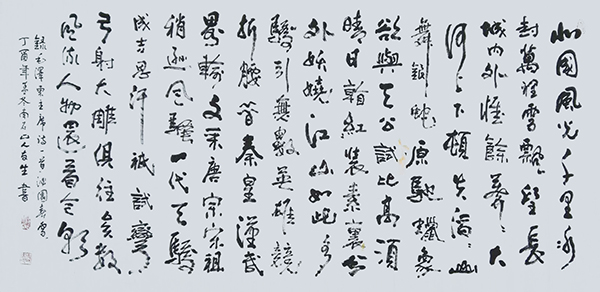 北國風光千里冰
封萬里雪飄望長
城內外惟餘莽々大
河上下頓失滔々山
舞銀蛇原馳蠟象
欲與天公試比高須
晴日看紅裝素裹分
外妖嬈江山如此多
嬌引無數英雄競
折腰昔秦皇漢武
略輸文采唐宗宋祖
稍遜風騷一代天驕
成吉思汗祇識彎
弓射大雕俱往矣數
風流人物還看今朝
錄毛澤東主席詩一首沁園春雪
丁酉年 冬南石山人 生書